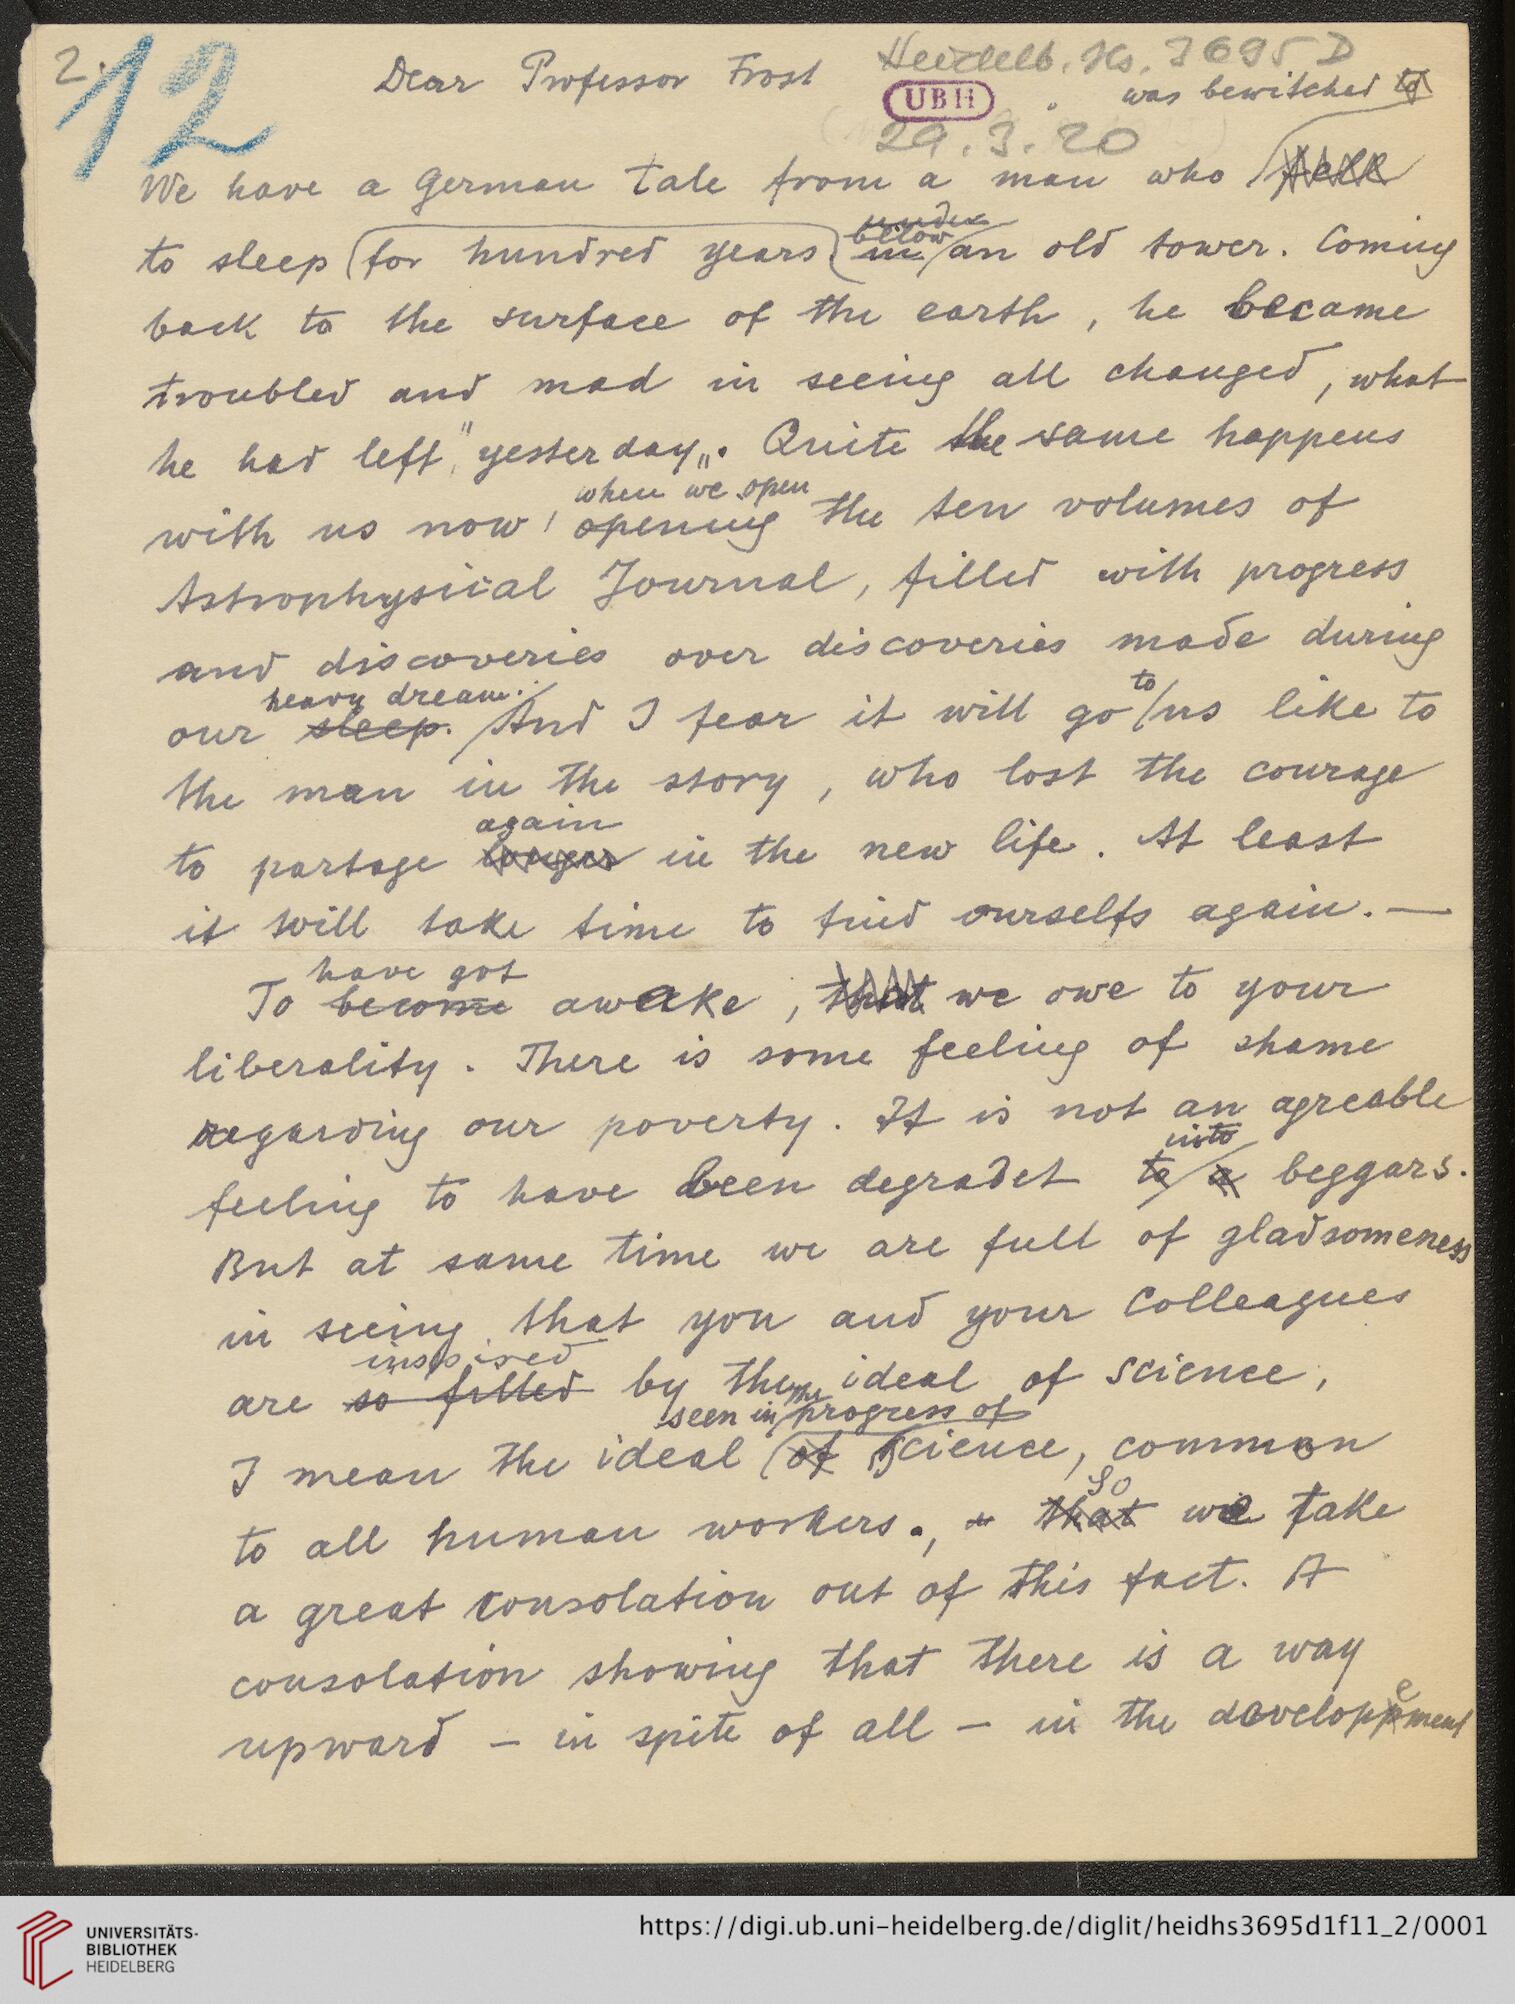 2.
12
Dear Professor Frost
Heidelb. Hs. 3695 D
UBH
29.3.20
was bewitched to
We have a German tale from a man who fell
to sleep for hundred years in below under an old tower. Coming
back to the surface of the earth, he became
troubled and mad in seeing all changed, what
he had left "yesterday„. Quite the same happens
when we open
with us now, opening the ten volumes of
Astrophysical Journal, filled with progress
and discoveries over discoveries made during
heavy dream.
our sleep. And I fear it will go to us like to
the man in the story, who lost the courage
again
to partage longer in the new life. At least
it will take time to find ourselfs again. —
have got
To become awake, that we owe to your
liberality. There is some feeling of shame
regarding our poverty. It is not an agreable
into
feeling to have been degradet to a beggars.
But at same time we are full of gladsomeness
in seeing that you and your Colleagues
inspired
are so filled by the ideal of science,
seen in the progress of
I mean the ideal of science, common
So
to all human workers., that we take
a great consolation out of this fact. A
consolation showing that there is a way
upward – in spite of all – in the developement
UNIVERSITÄTS-
BIBLIOTHEK
HEIDELBERG
https://digi.ub.uni-heidelberg.de/diglit/heidhs3695d1f11_2/0001